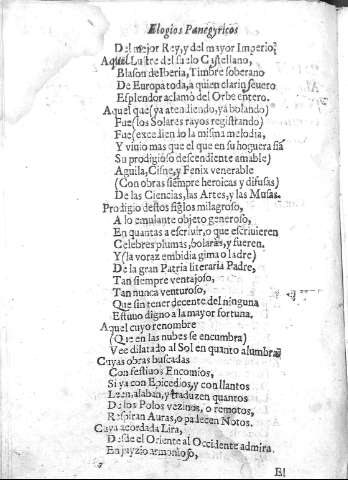 Elogios Panegyricos
Del mejor Rey, y del mayor Imperio,
Aquel Lustre del suelo Castellano,
Blason de Iberia, Timbre soberano
De Europa toda, a quien clarin severo
Esplendor aclamò del Orbe entero.
Aquel que (ya atendiendo, yà bolando)
Fue (los Solares rayos registrando)
Fue (excediendo la misma melodia,
Y viuio mas que el que en su hoguera fià
Su prodigioso descendiente amable)
Aguila, Cisne, y Fenix venerable
(Con obras siempre heroicas y difusas)
De las Ciencias, las Artes, y las Musas.
Prodigio destos siglos milagroso,
A lo emulante objeto generoso,
En quantas a escriuir, o que escriuieren
Celebres plumas, bolaràs, y fueren.
Y (la voraz embidia gima o ladre)
De la gran Patria literaria Padre,
Tan siempre ventajoso,
Tan nunca venturoso,
Que sin tener decente del ninguna
Estuuo digno a la mayor fortuna.
Aquel cuyo renombre
(Que en las nubes se encumbra)
Vee dilatado al Sol en quanto alumbra,
Cuyas obras buscadas
Con festiuos Encomios,
Si ya con Epicedios, y con llantos
Leen, alaban, y traduzen quantos
De los Polos vezinos, o remotos,
Respiran Auras, o padecen Notos.
Cuya acordada Lira,
Desde el Oriente al Occidente admira.
En juyzio armonioso,
El